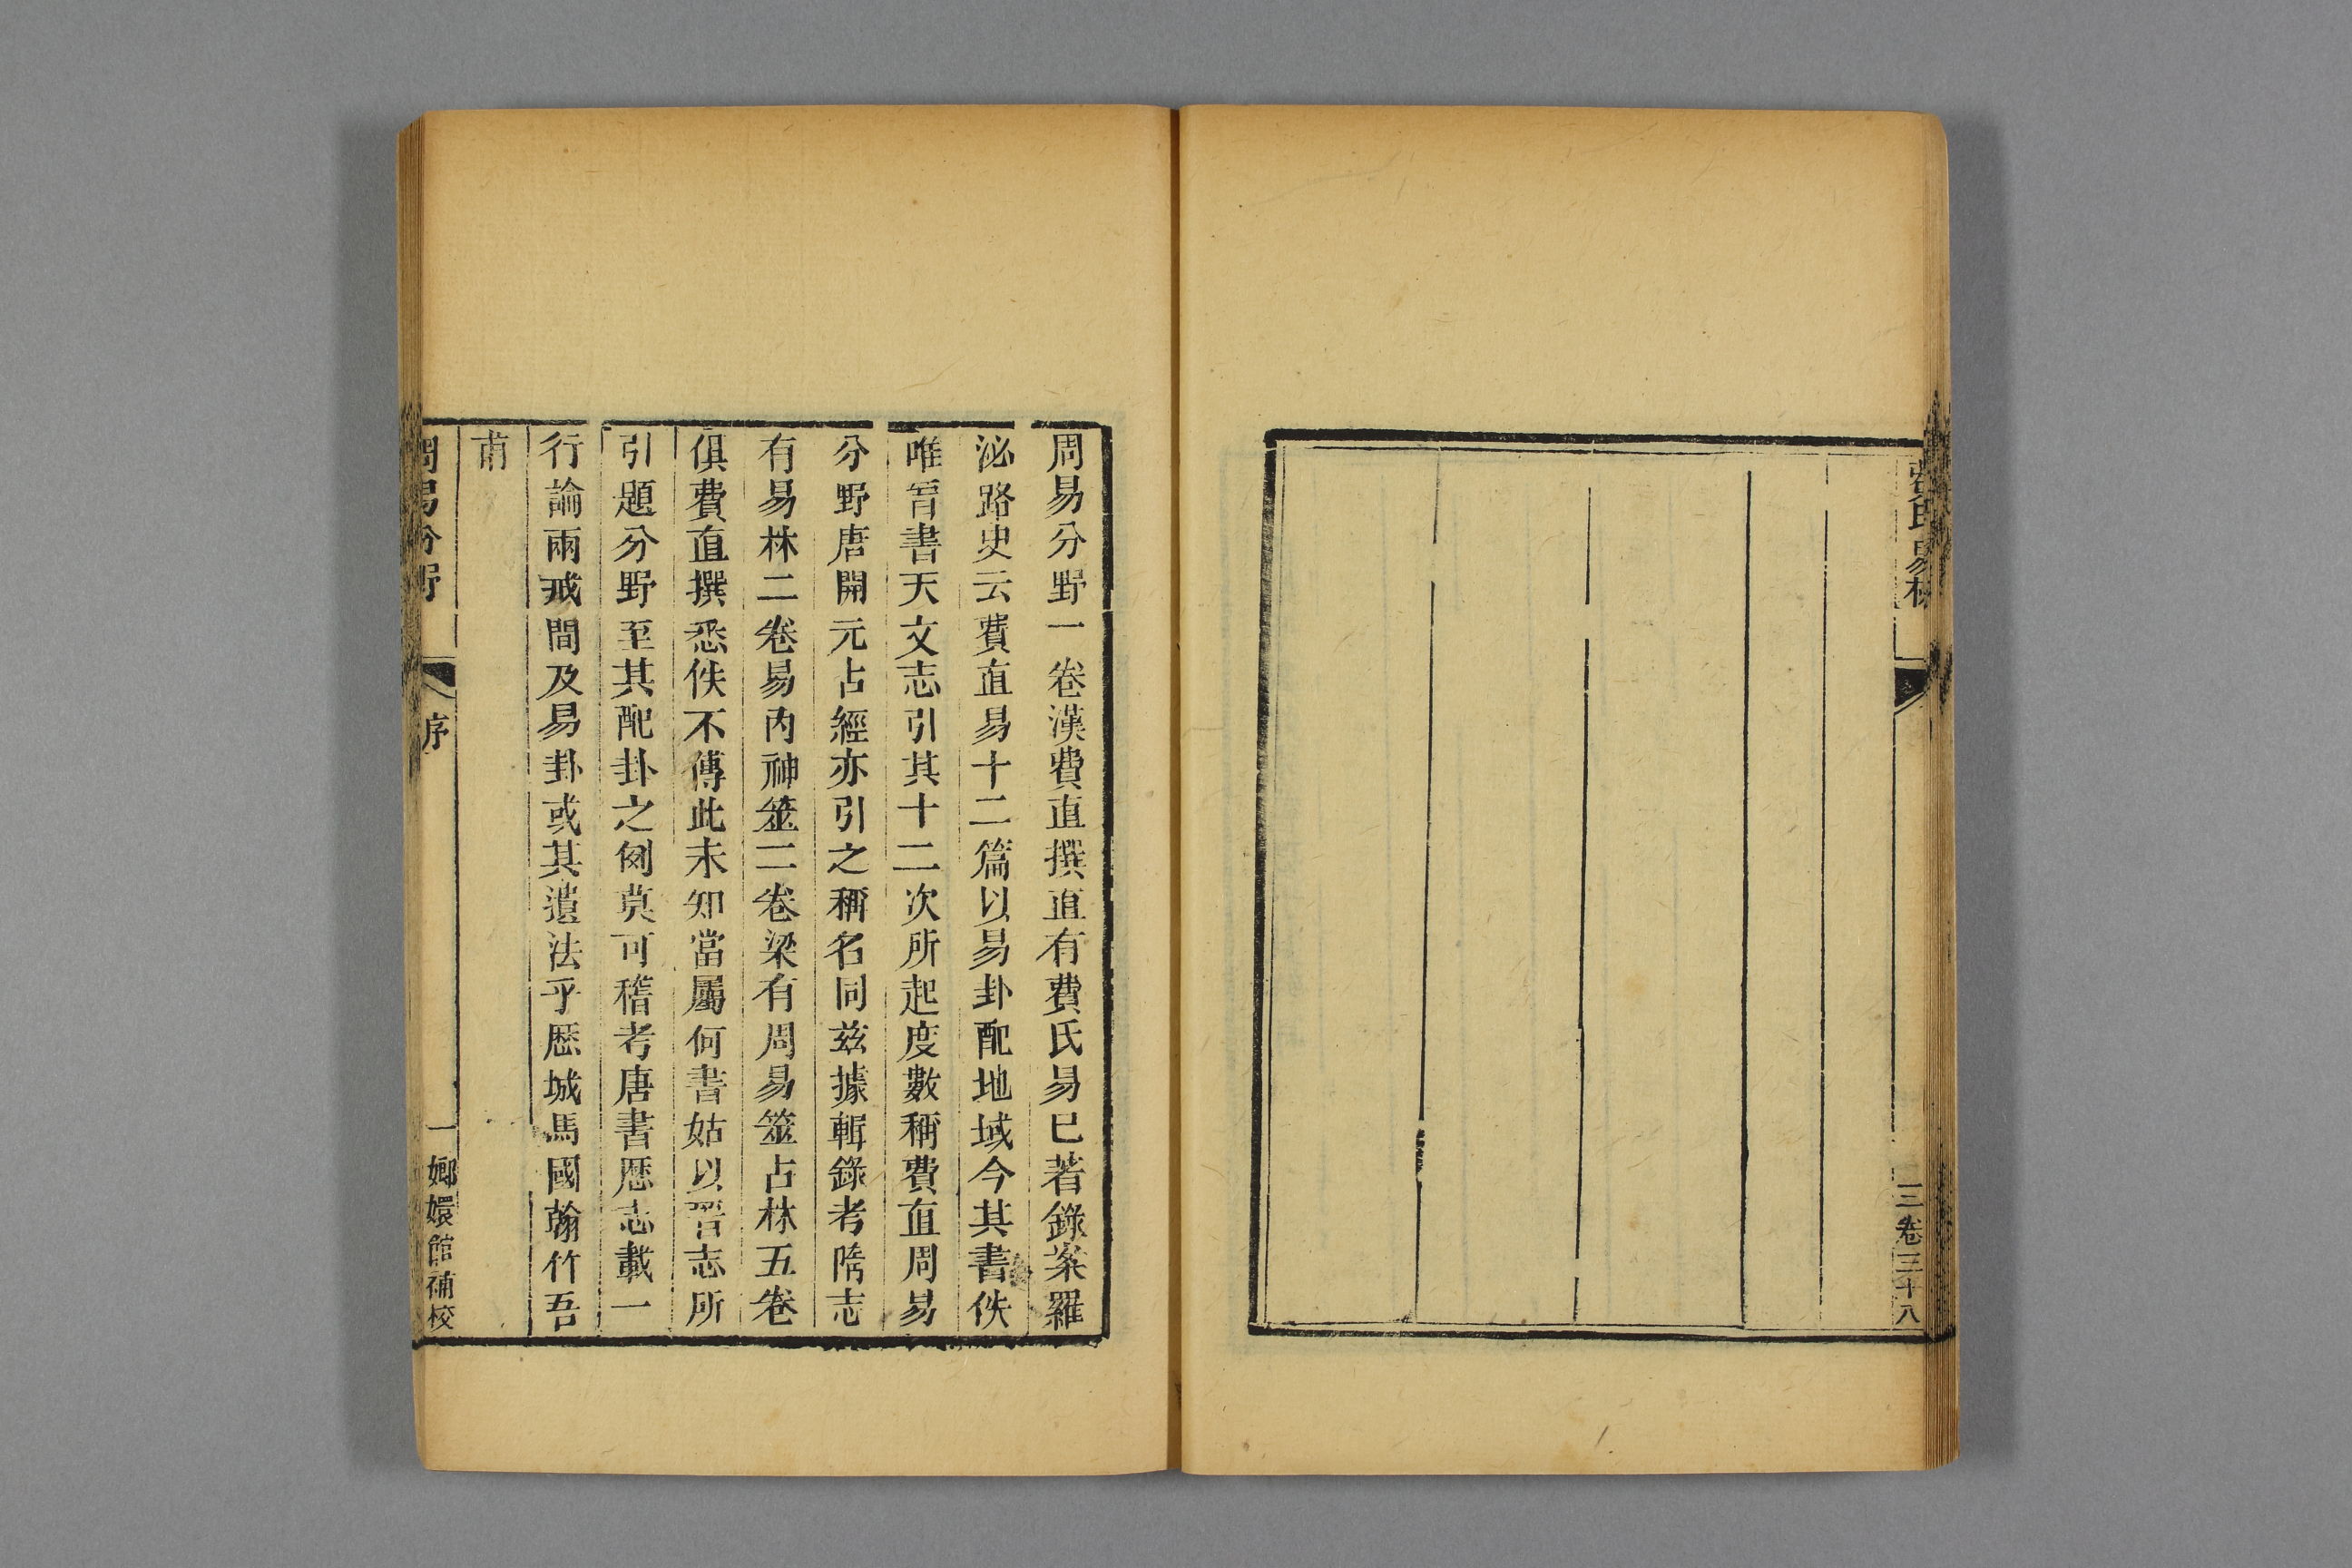 氏易林
三卷三十八
周易分野一卷漢費直撰直有費氏易已著錄案羅
泌路史云費直易十二篇以易卦配地域今其書佚
唯晉書天文志引其十二次所起度數稱費直周易
分野唐開元占經亦引之稱名同兹據輯錄考隋志
有易林二卷易內神筮二卷梁有周易筮占林五卷
俱費直撰悉佚不傳此未知當屬何書姑以晉志所
引題分野至其配卦之例莫可稽考唐書歷志載一
行論兩戒間及易卦或其遺法乎歷城馬國翰竹吾
甫
周易分野
序
一
嫏嬛館補校